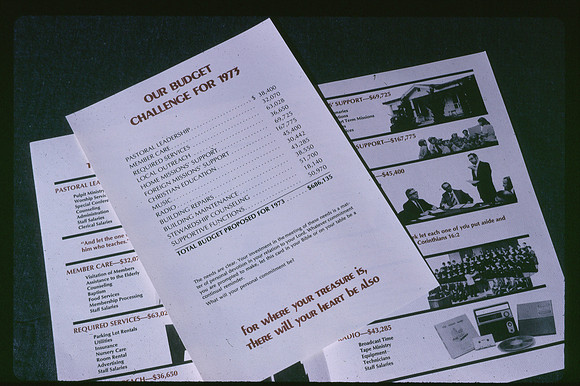 OUR BUDGET
CHALLENGE FOR 1973
PASTORAL LEADERSHIP $ 38,400
MEMBER CARE 32,070
REQUIRED SERVICES 63,028
LOCAL OUTREACH 36,650
HOME MISSIONS' SUPPORT 69,725
FOREIGN MISSIONS' SUPPORT 167,775
CHRISTIAN EDUCATION 45,400
MUSIC 30,442
RADIO 43,285
BUILDING REPAIRS 38,550
BUILDING MAINTENANCE 51,700
STEWARDSHIP COUNSELING 18,140
SUPPORTIVE FUNCTIONS 50,970
TOTAL BUDGET PROPOSED FOR 1973 $686,135
The needs are clear. Your investment in the meeting of these needs is a mat-
ter of personal devotion in your relation to your Lord. Whatever commitment
you are prompted to make, let this card in your Bible or on your table be a
continual reminder.
What will your personal commitment be?
for where your treasure is,
there will your heart be also
PASTORAL LEA
Pulpit Minist
Worship Servi
Special Confere
Counseling
Administration
Staff Salaries
Clerical Salaries
"And let the one
him who teaches."
MEMBER CARE—$32,07
Visitation of Members
Assistance to the Elderly
Counseling
Baptism
Food Services
Membership Processing
Staff Salaries
REQUIRED SERVICES—$63,02
Parking Lot Rentals
Utilities
Insurance
Nursery Care
Room Rental
Advertising
Staff Salaries
EACH—$36,650
' SUPPORT—$69,725
naries
tions
ort Term Missions
SUPPORT—$167,775
—$45,400
k let each one of you put aside and
Corinthians 16:2
RADIO—$43,285
Broadcast Time
Tape Ministry
Equipment
Technicians
Staff Salaries